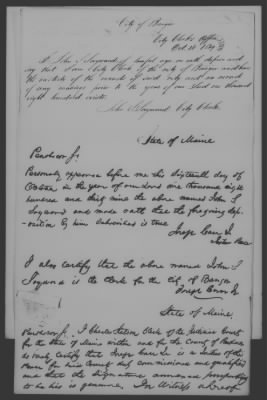 City of Bangor
City Clerks Office
Oct. 16 1893
I, John S. Sayward, of lawful age on oath depose and
say that I am City Clerk of the city of Bangor and have
the custody of the records of said city and no record
of any marriages prior to the year of our Lord one thousand
eight hundred
John S. Sayward City Clerk
State of Maine
Penobscot Ss.
Personally appeared before me this Sixteenth day of
October in the year of our Lord one thousand eight
hundred and ninety three the above named John S.
Sayward and made oath that the foregoing depo-
sition by him subscribed is true
Joseph Carr Jr
Justice Peace
I also certify that the above named John S
Sayward is the Clerk for the City of Bangor
Joseph Carr Jr
State of Maine
Penobscot Ss. I Charles Stetson Clerk of the Judicial Courts
for the State of Maine within and for the County of Penobscot
do hereby certify that Joseph Carr Jr is a Justice of the
Peace for this County duly commissioned and qualified
and that the signature annexed purporting
to be his is genuine, In Witness whereof